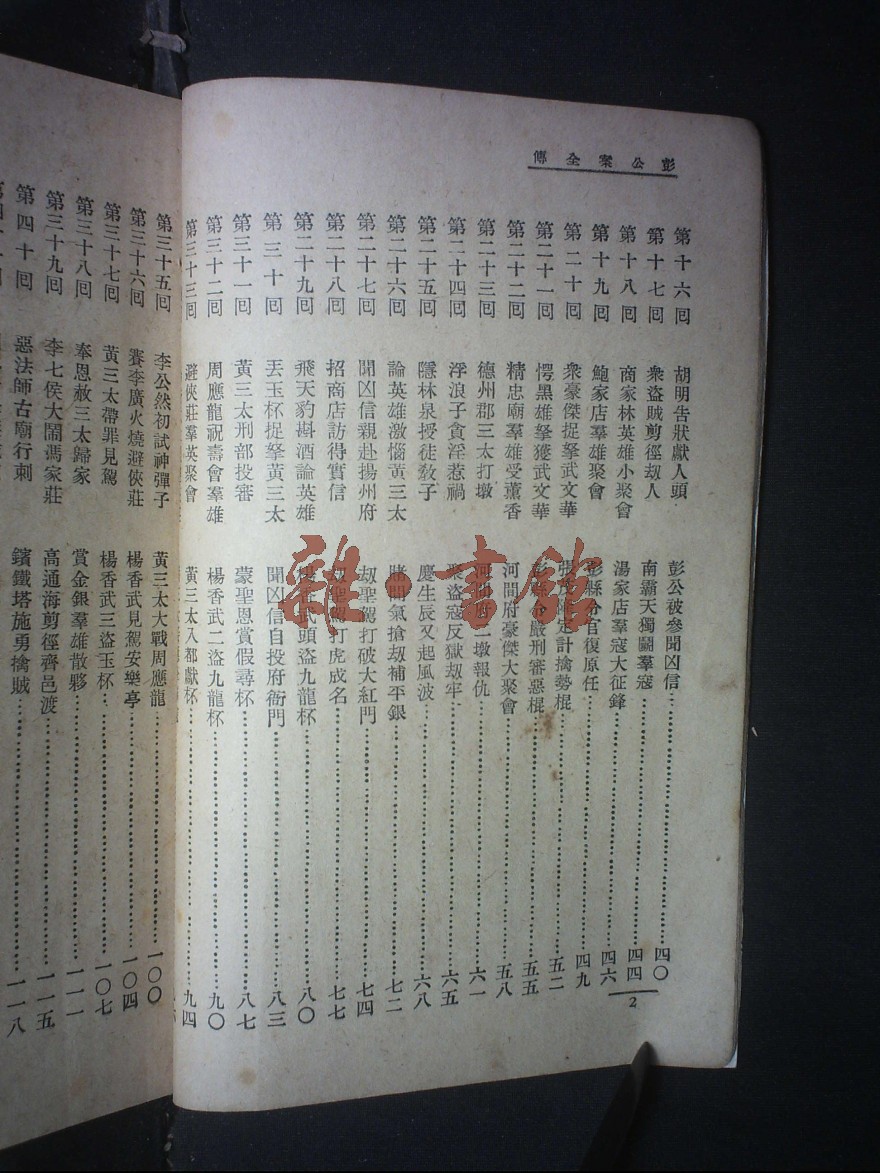 彭公案全傳
第十六回 胡明告狀獻人頭 彭公被參聞凶信 四〇
第十七回 衆盜賊剪徑刧人 南霸天獨鬭羣寇 四四
第十八回 商家林英雄小聚會 湯家店羣寇大征鋒 四六
第十九回 鮑家店羣雄聚會 彭縣令官復原任 四九
第二十回 衆豪傑捉拏武文華 張茂隆定計擒勢棍 五二
第二十一回 愣黑雄拏獲武文華 彭縣令嚴刑審惡棍 五五
第二十二回 精忠廟羣雄受薰香 河間府豪傑大聚會 五八
第二十三回 德州郡三太打墩 河間府二墩報仇 六一
第二十四回 浮浪子貪淫惹禍 聚盜寇反獄刧牢 六五
第二十五回 隱林泉授徒敎子 慶生辰又起風波 六八
第二十六回 論英雄激惱黃三太 賭閒氣搶刧補平銀 七二
第二十七回 聞凶信親赴揚州府 刧聖駕打破大紅門 七四
第二十八回 招商店訪得實信 刧聖駕打虎成名 七七
第二十九回 飛天豹斟酒論英雄 楊香武頭盜九龍杯 八〇
第三十回 丟玉杯捉拏黃三太 聞凶信自投府衙門 八三
第三十一回 黃三太刑部投審 蒙聖恩賞假尋杯 八七
第三十二回 周應龍祝壽會羣雄 楊香武二盜九龍杯 九〇
第三十三回 避俠莊羣英聚會 黃三太入都獻杯 九四
2
第三十五回 李公然初試神彈子 黃三太大戰周應龍 一〇〇
第三十六回 賽李廣火燒避俠莊 楊香武見駕安樂亭 一〇四
第三十七回 黃三太帶罪見駕 楊香武三盜玉杯 一〇七
第三十八回 奉恩赦三太歸家 賞金銀羣雄散夥 一一一
第三十九回 李七侯大鬧馮家莊 高通海剪徑齊邑渡 一一五
第四十回 惡法師古廟行刺 鑌鐵塔施勇擒賊 一一八
雜·書館